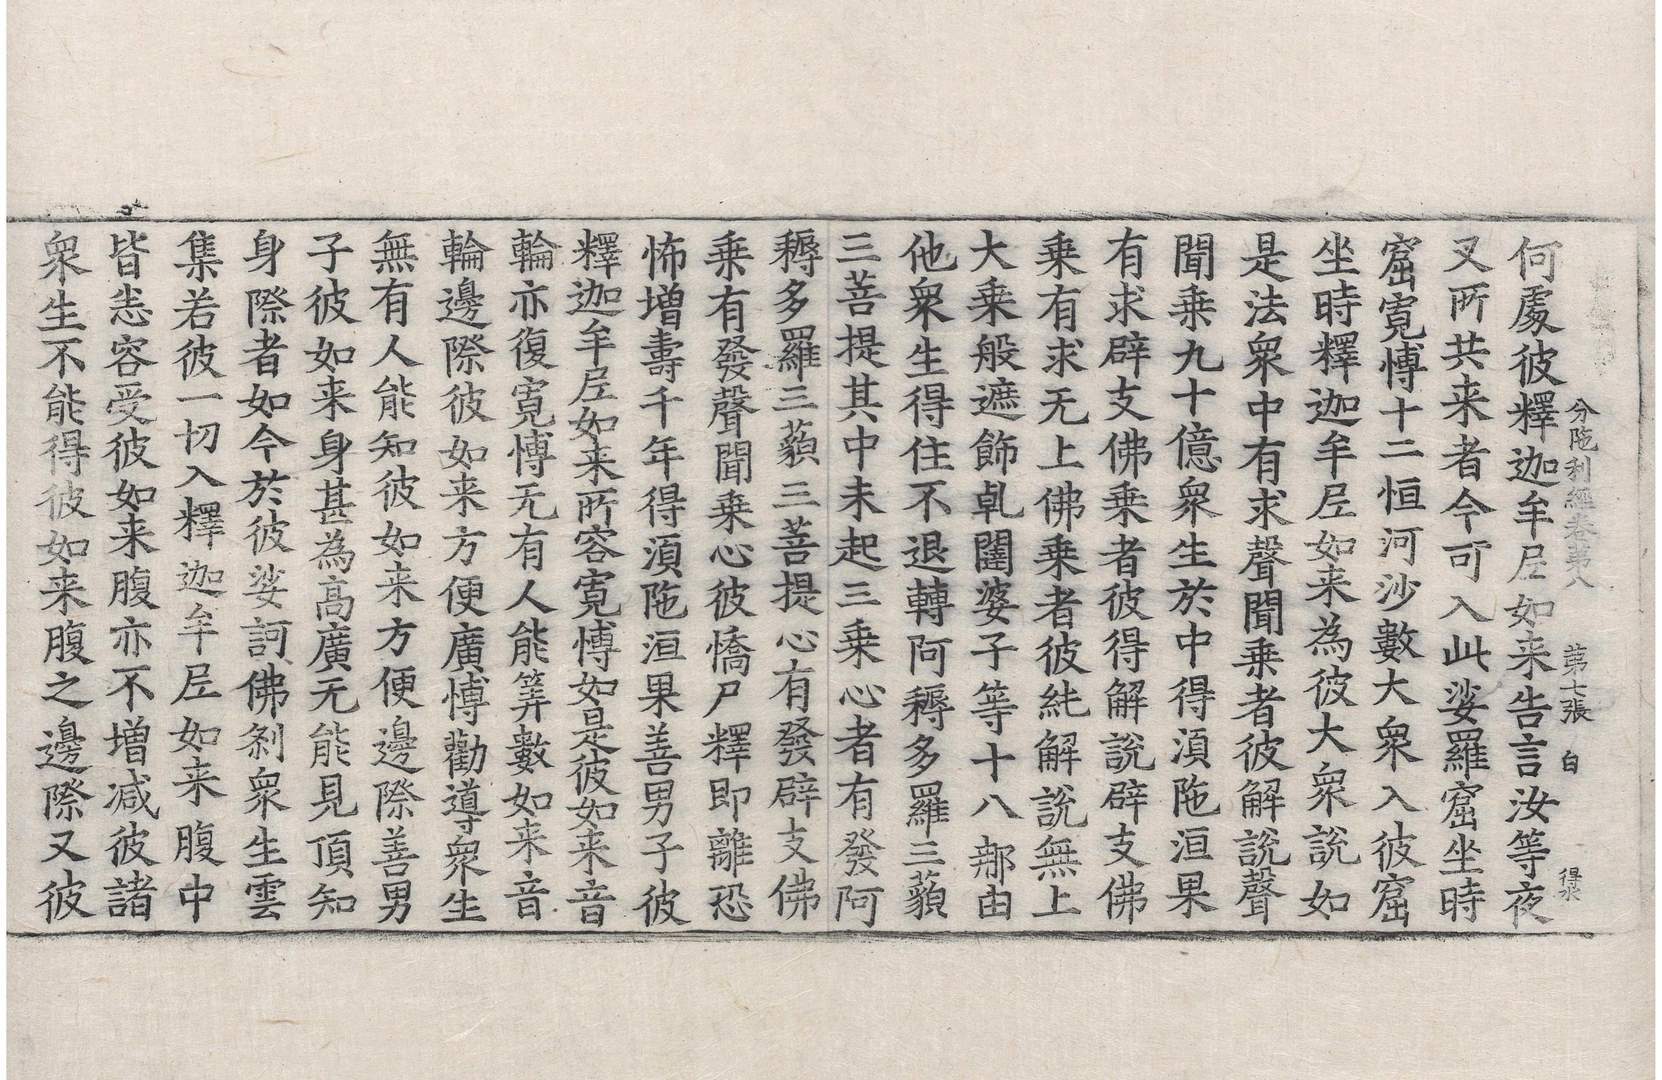 分陁利經卷第八 第七張 白 得永
何處彼釋迦牟尼如来告言汝等夜
叉所共来者今可入此娑羅窟坐時
窟寛愽十二恒河沙數大衆入彼窟
坐時釋迦牟尼如来為彼大衆說如
是法衆中有求聲聞乗者彼解說聲
聞乗九十億衆生於中得湏陁洹果
有求辟支佛乗者彼得解說辟支佛
乗有求无上佛乗者彼純解說無上
大乗般遮飾乹闥婆子等十八那由
他衆生得住不退轉阿耨多羅三藐
三菩提其中未起三乗心者有發阿
耨多羅三藐三菩提心有發辟支佛
乗有發聲聞乗心彼憍尸釋即離恐
怖增壽千年得湏陁洹果善男子彼
釋迦牟尼如来所容寛愽如是彼如来音
輪亦復寛愽无有人能筭數如来音
輪邊際彼如来方便廣愽勸導衆生
無有人能知彼如来方便邊際善男
子彼如来身甚為高廣无能見頂知
身際者如今於彼娑訶佛刹衆生雲
集若彼一切入釋迦牟尼如来腹中
皆悉容受彼如来腹亦不增減彼諸
衆生不能得彼如来腹之邊際又彼